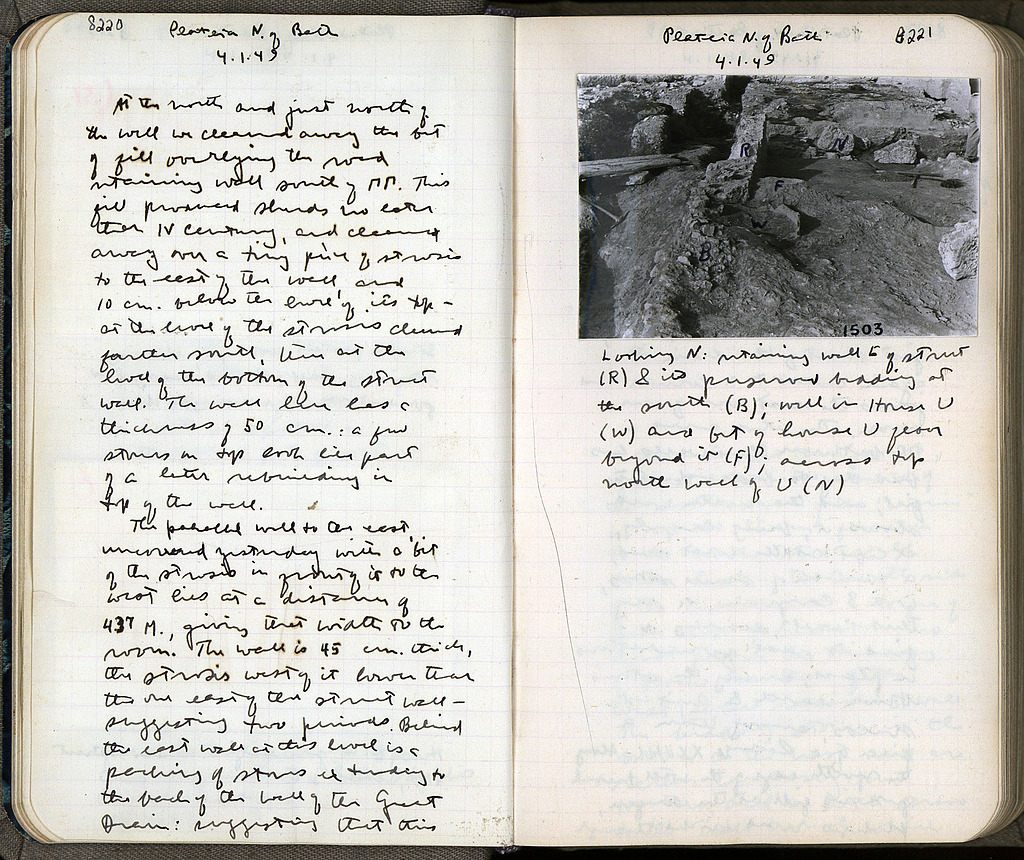 8220
Plateia N. of Bath
4.1.49
At the north and just north of
the well we cleaned away the bit
of fill overlying the road
retaining wall south of ΠΠ. This
fill produced sherds no later
than IV century, and cleaned
away over a tiny piece of strosis
to the east of the wall and
10 cm. below the level of its top –
at the level of the strosis cleaned
farther south, then at the
level of the bottom of the street
wall. The wall here has a
thickness of 50 cm.: a few
stones on top look like part
of a later rebuilding in
top of the wall.
The parallel wall to the east,
uncovered yesterday with a bit
of the strosis in front of it to the
west lies at a distance of
4.37 M., giving that width to the
room. The wall is 45 cm. thick,
the strosis west of it lower than
the one east of the street wall –
suggesting two periods. Behind
the east wall at this level is a
packing of stones extending to
the back of the wall of the Great
Drain: suggesting that this
8221
Plateia N. of Bath
4.1.49
R
N
F
W
B
1503
Looking N: retaining wall E of street
(R) & its preserved bedding at
the south (B); well in House U
(W) and bit of house U floor
beyond it (F); across top
north wall of U (N)